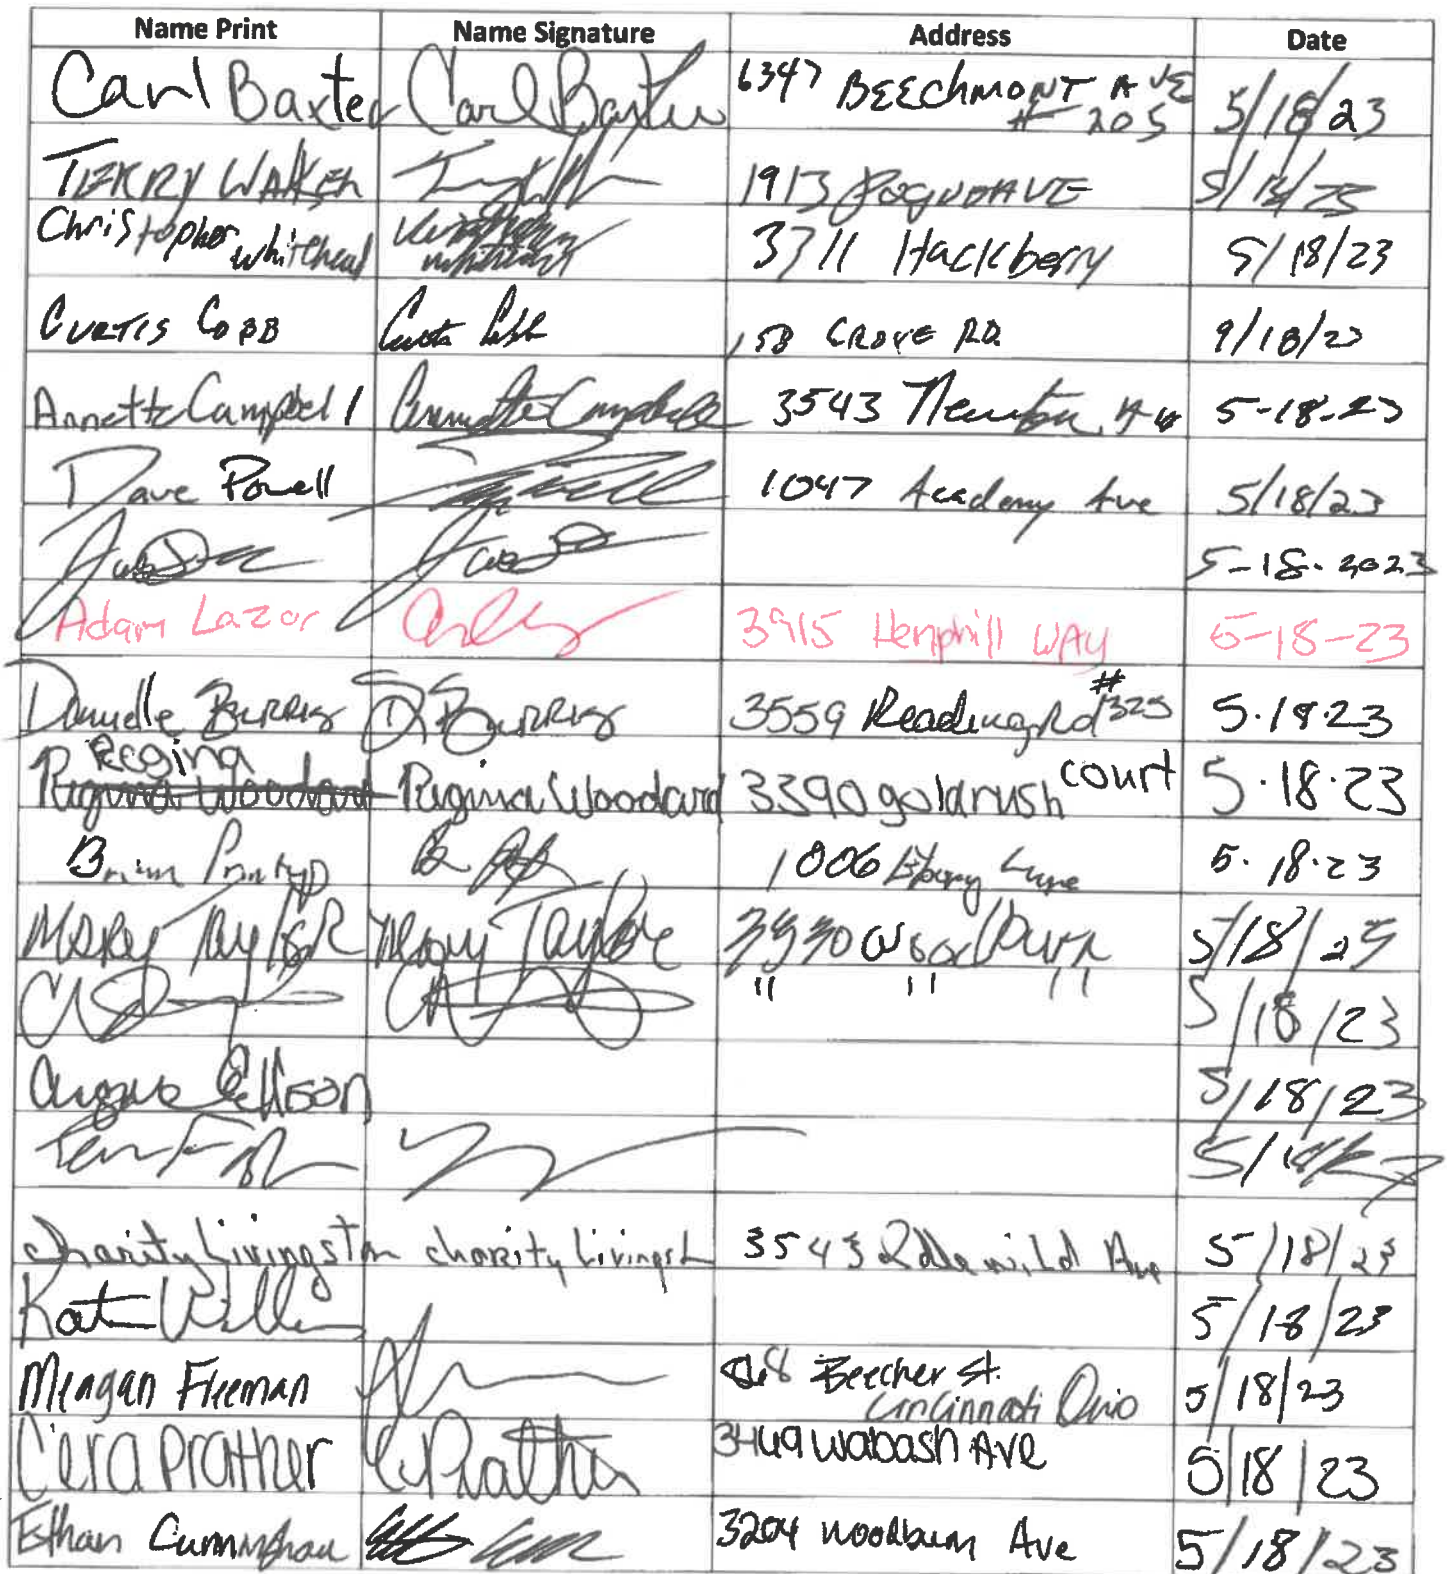 Name Print Name Signature Address Date
Carl Baxter Carl Baxter 6347 BEEChMONT AVE # 205 5/18/23
TERRY WALKER 1913 AVE
Christopher whitehead 3711 Hackberry 5/18/23
CURTIS COBB Curtis Cobb CROVE RD. 9/18/23
Annette Campbell Annette Campbell 3543 Newton 5-18-23
Dave Powell 1047 Academy Ave 5/18/23
5-18-2023
Adam Lazor 3915 Hemphill WAY 5-18-23
Danielle BURRIS D BURRIS 3559 Reading Rd #325 5.18.23
Regina
Regina Woodard Regina Woodard 3390 goldrush court 5.18.23
1006 Ebony Lane 5.18.23
MARY TAYLOR Mary Taylor 3930 5/18/23
" " " 5/18/23
Ellison 5/18/23
Charity Livingston charity Livingst 3543 Idlewild Ave 5/18/23
5/18/23
Meagan Freeman Beecher St. Cincinnati Ohio 5/18/23
Cera Prather C Prather 3449 Wabash AVE 5/18/23
Ethan Cunningham 3204 Woodburn Ave 5/18/23